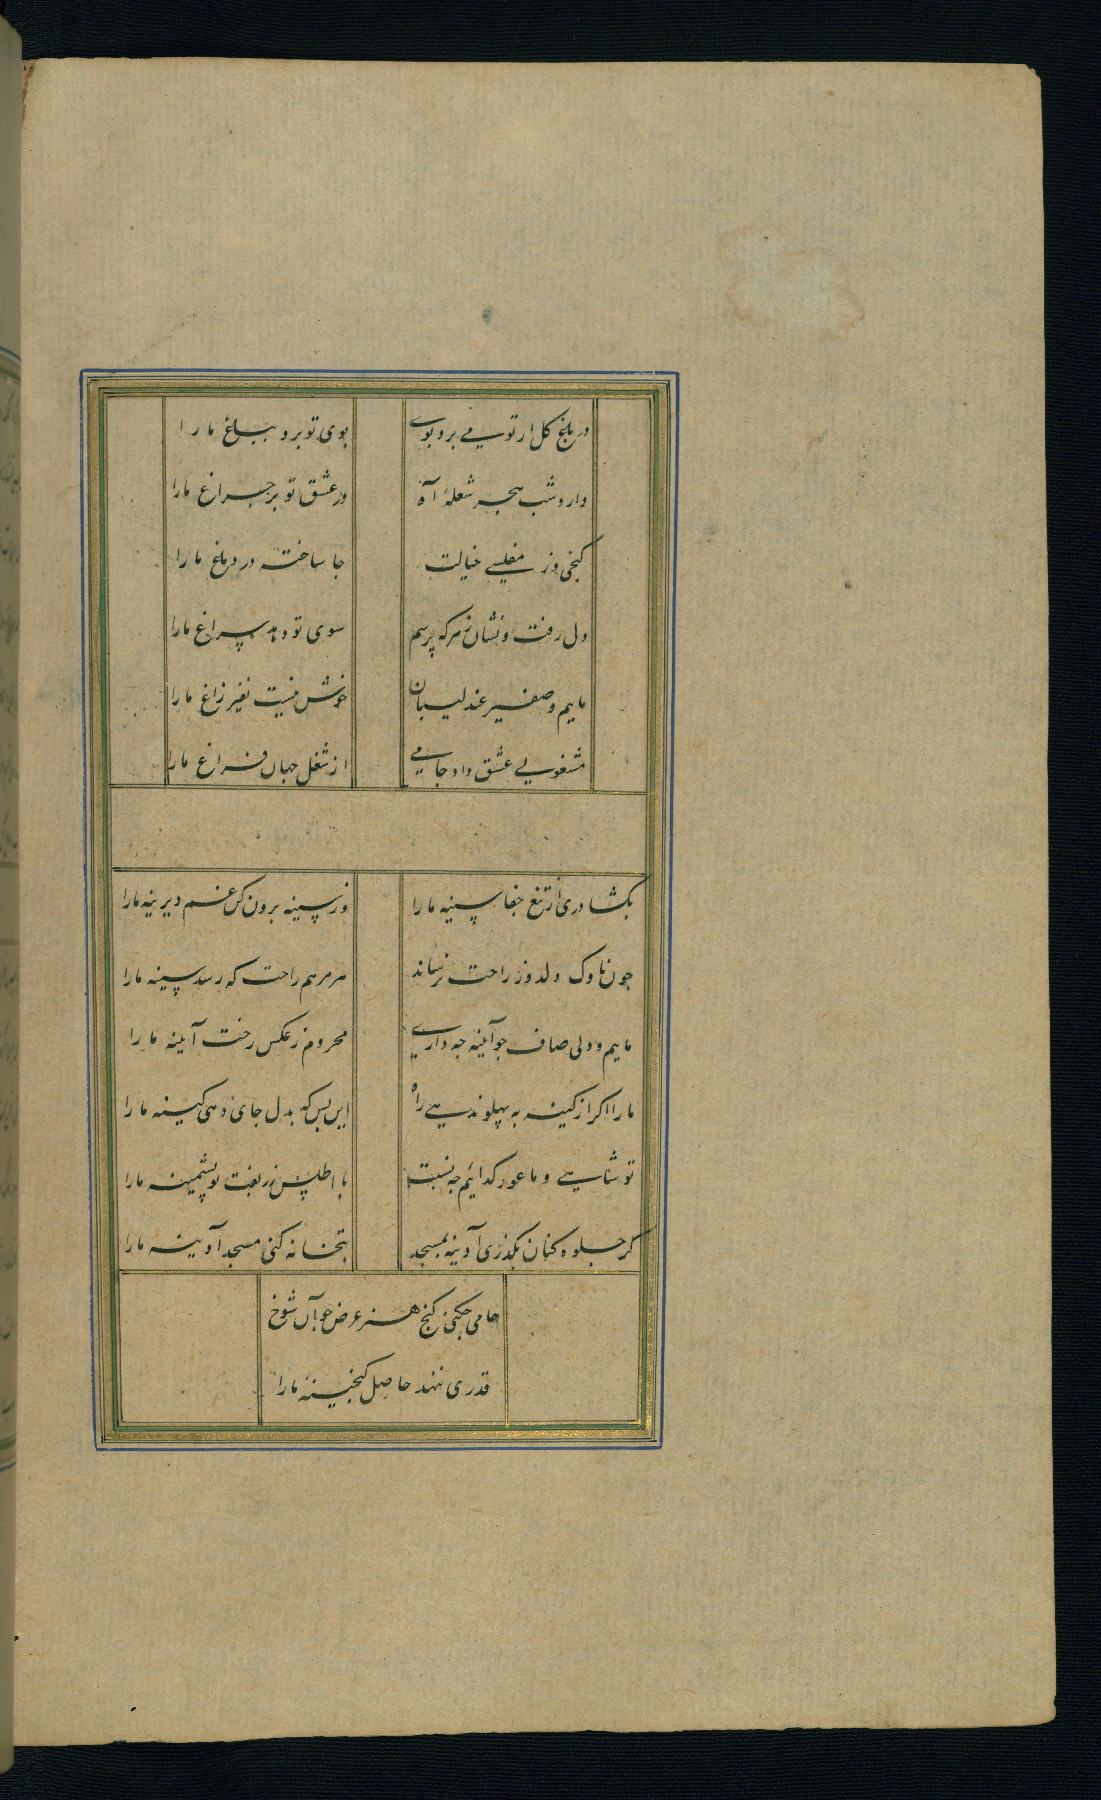 در باغ گل ار تو می برد بوی
بوی تو برد بباغ ما را
دارد شب هجر شعلهٔ آه
در عشق تو بر چراغ ما را
گنجی وز مفلسی خیالت
جا ساخته در دماغ ما را
دل رفت و نشان ز هر که پرسم
سوی تو دهد سراغ ما را
ماییم و صفیر عندلیبان
خوش نیست نفیر زاغ ما را
مشغولی عشق داد جامی
از شغل جهان فراغ ما را
بکشا دری از تیغ جفا سینه ما را
وز سینه برون کن غم دیرینه ما را
چون ناوک دلدوز راحت نرساند
هر مرهم راحت که رسد سینه ما را
ماییم و دلی صاف چو آیینه چه داری
محروم ز عکس رخت آیینه ما را
ما را اگر از کینه به پهلو ندهی راه
این بس که بدل جای دهی کینه ما را
تو شاهی و ما عور گدائیم چه نسبت
با اطلس زربفت تو پشمینه ما را
گر جلوه کنان بگذری آدینه بمسجد
بتخانه کنی مسجد آدینه ما را
جامی چکنی گنج هنر عرض چو آن شوخ
قدری ننهد حاصل گنجینهٔ ما را